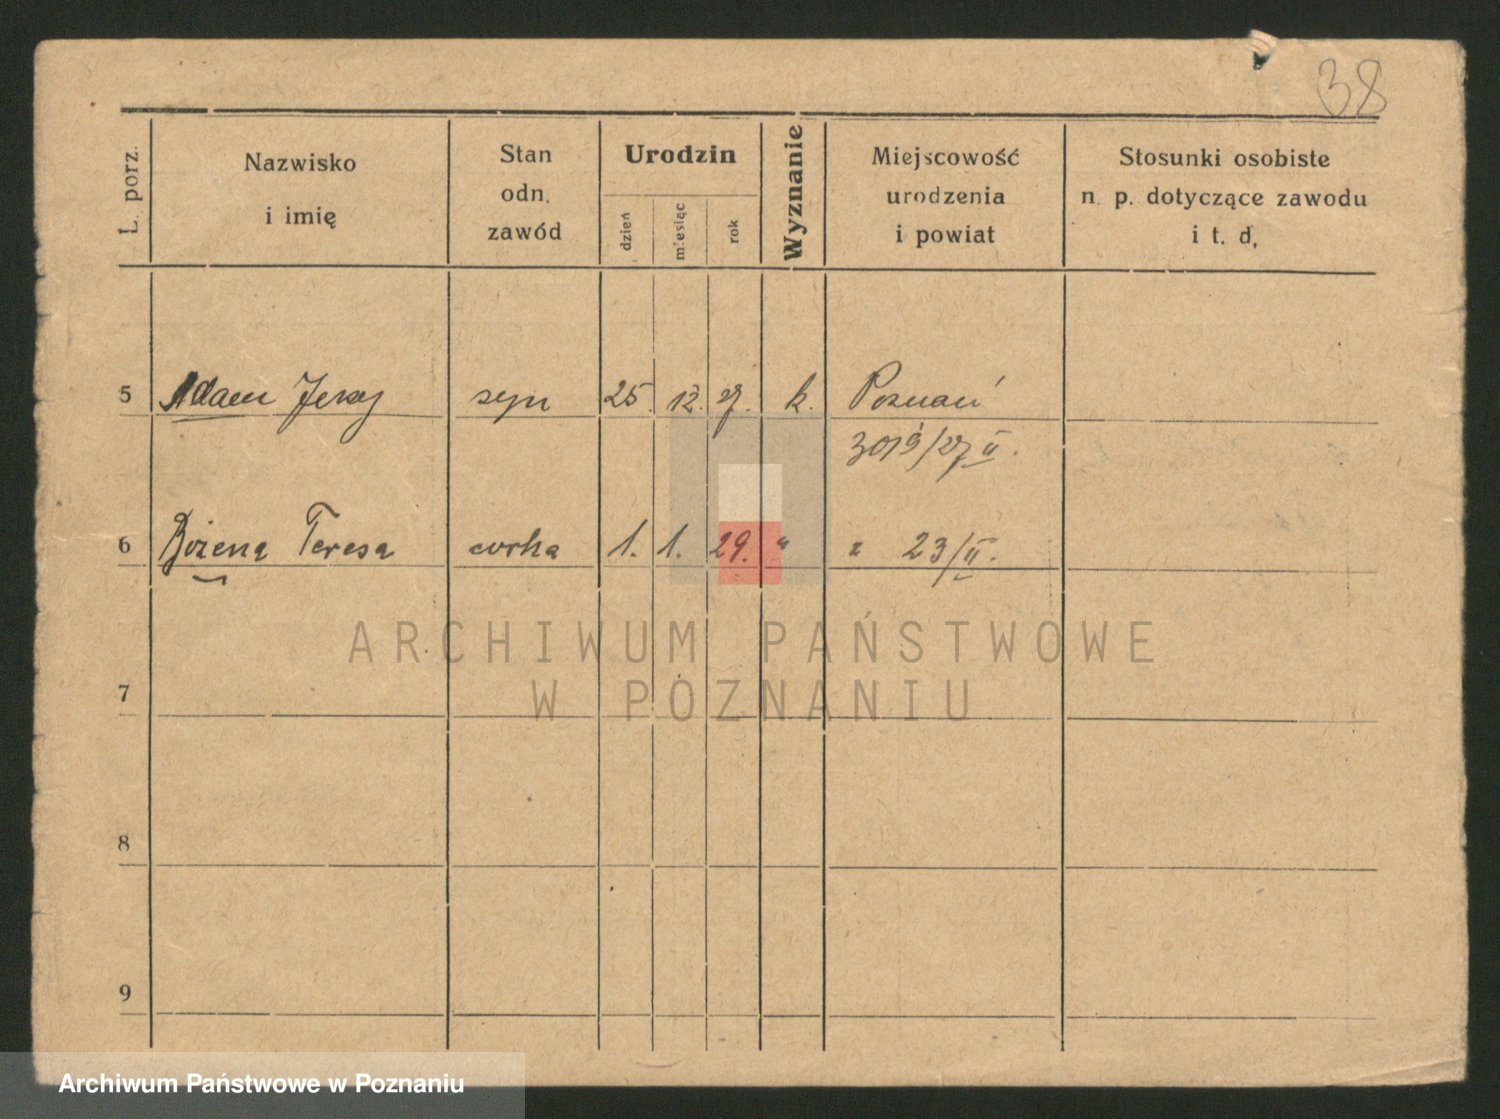 38
L. porz.
Nazwisko
i imię
Stan
odn.
zawód
Urodzin
dzień
miesiąc
rok
Wyznanie
Miejscowość
urodzenia
i powiat
Stosunki osobiste
n. p. dotyczące zawodu
i t. d,
5 Adam Jerzy syn 25. 12. 27. k. Poznań
3019/27 II.
6 Bożena Teresa córka 1. 1. 29. " " 23/II.
ARCHIWUM PAŃSTWOWE
W POZNANIU
7
8
9
Archiwum Państwowe w Poznaniu